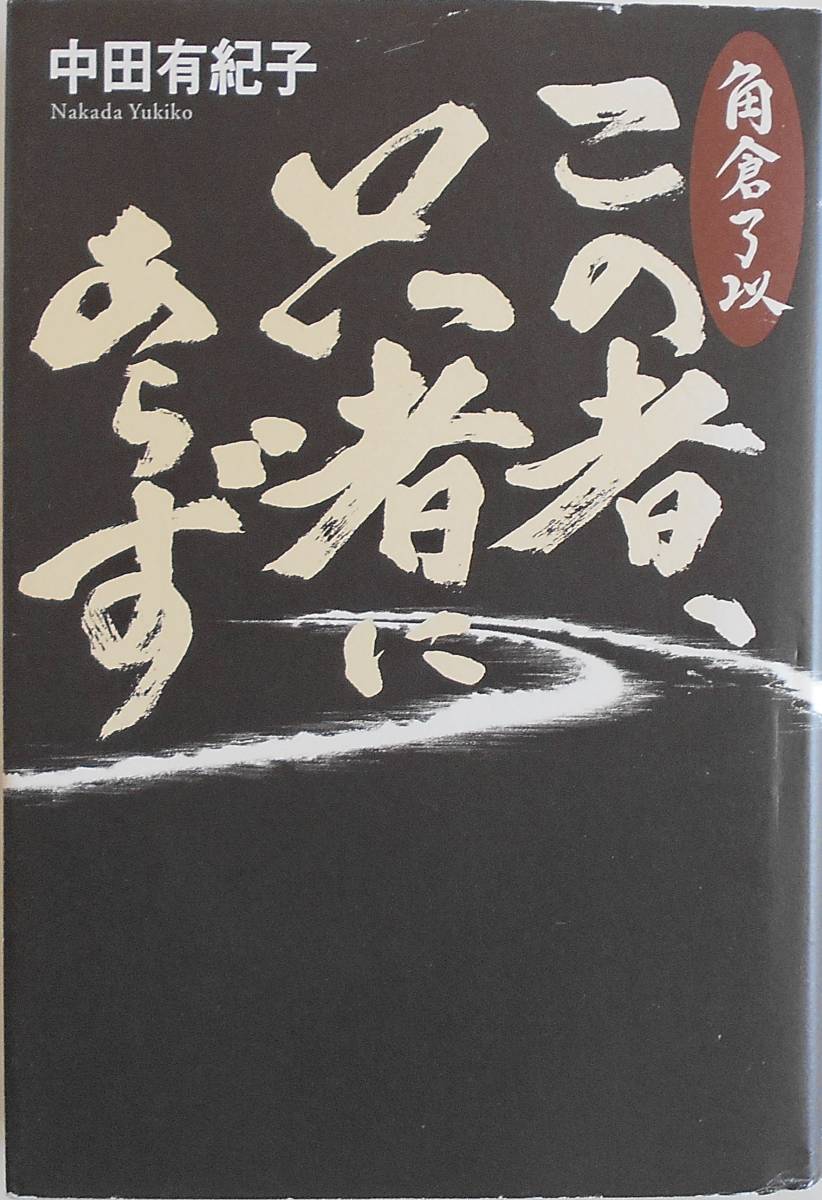 中田有紀子
Nakada Yukiko
角倉了以
この者、
只者に
あらず